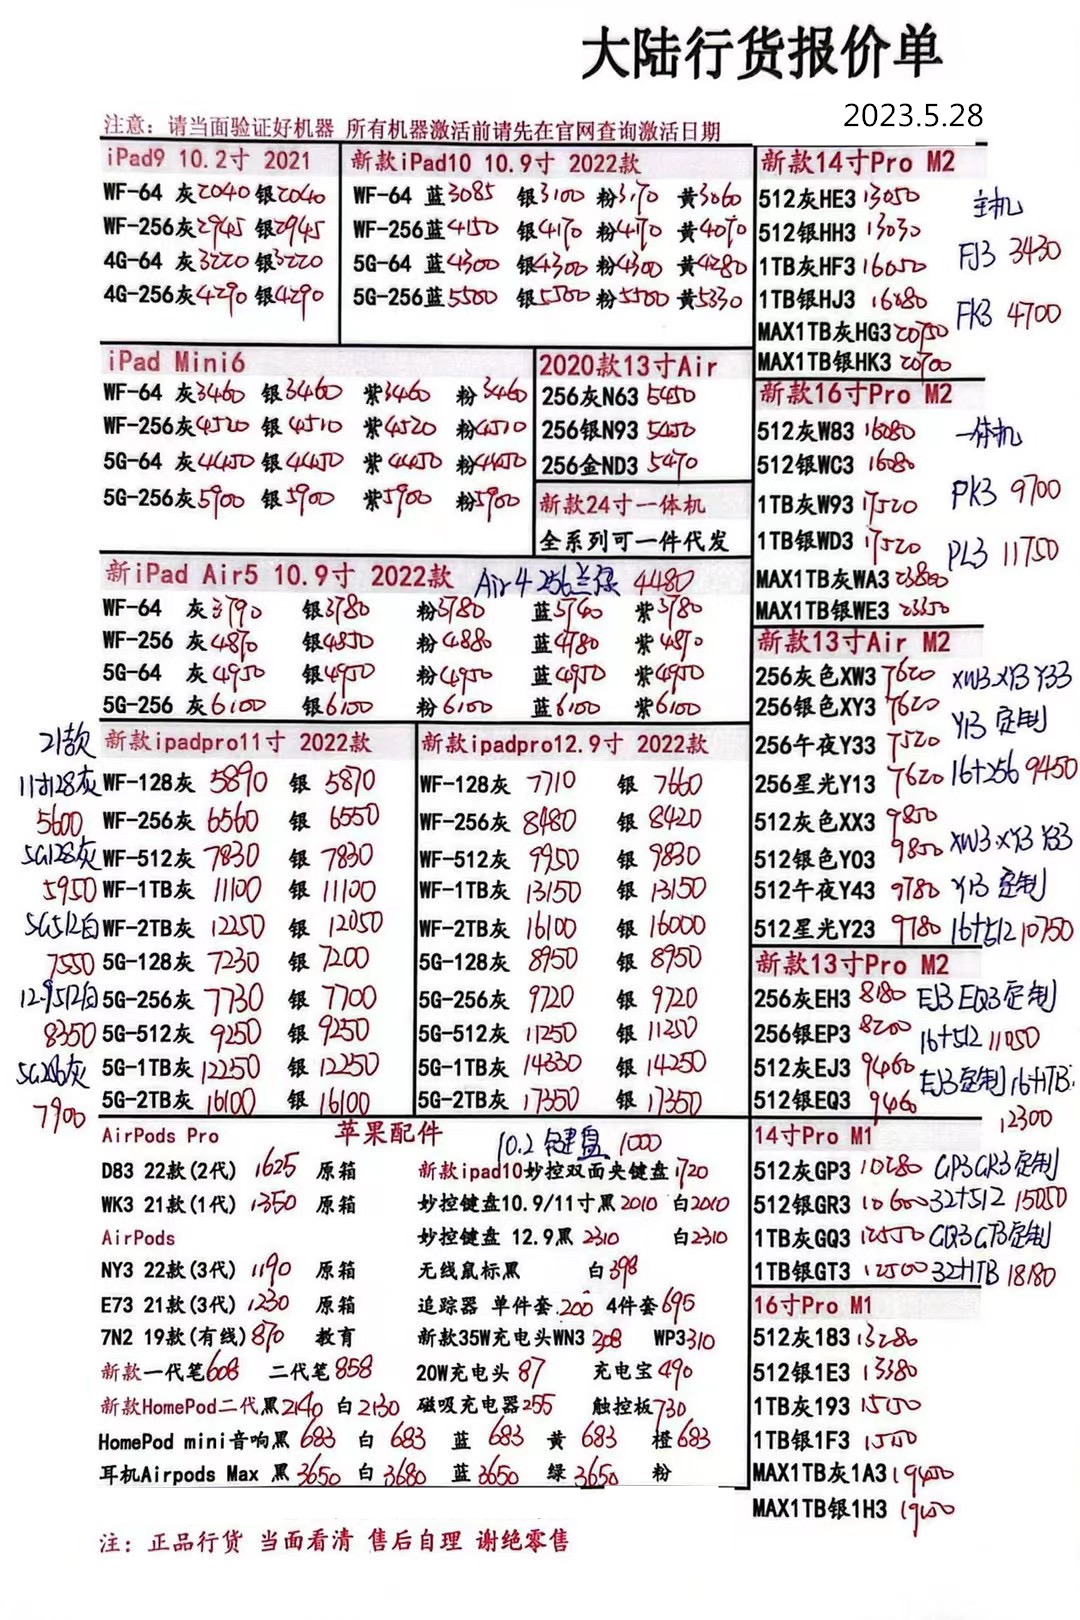 大陆行货报价单
2023.5.28
注意：请当面验证好机器 所有机器激活前请先在官网查询激活日期
iPad9 10.2寸 2021
WF-64 灰2040 银2040
WF-256灰2945 银2945
4G-64 灰3220 银3220
4G-256灰4290 银4290
新款iPad10 10.9寸 2022款
WF-64 蓝3085 银3100 粉3170 黄3060
WF-256蓝4150 银4170 粉4170 黄4070
5G-64 蓝4300 银4300 粉4300 黄4280
5G-256蓝5500 银5500 粉5500 黄5330
iPad Mini6
WF-64 灰3460 银3460 紫3460 粉3460
WF-256灰4520 银4510 紫4520 粉4510
5G-64 灰4450 银4450 紫4450 粉4450
5G-256灰5900 银5900 紫5900 粉5900
2020款13寸Air
256灰N63 5450
256银N93 5450
256金ND3 5470
新款24寸一体机
全系列可一件代发
新iPad Air5 10.9寸 2022款 Air4 256兰绿 4480
WF-64 灰3790 银3780 粉3780 蓝3740 紫3780
WF-256 灰4870 银4850 粉4880 蓝4780 紫4870
5G-64 灰4950 银4950 粉4950 蓝4950 紫4950
5G-256 灰6100 银6100 粉6100 蓝6100 紫6100
21款
11寸128灰
5600
5G128灰
5950
5G512白
7550
12.9512白
8350
5G256灰
7900
新款ipadpro11寸 2022款
WF-128灰 5890 银 5870
WF-256灰 6560 银 6550
WF-512灰 7830 银 7830
WF-1TB灰 11100 银 11100
WF-2TB灰 12250 银 12050
5G-128灰 7230 银 7200
5G-256灰 7730 银 7700
5G-512灰 9250 银 9250
5G-1TB灰 12250 银 12250
5G-2TB灰 16100 银 16100
新款ipadpro12.9寸 2022款
WF-128灰 7710 银 7660
WF-256灰 8480 银 8420
WF-512灰 9950 银 9830
WF-1TB灰 13150 银 13150
WF-2TB灰 16100 银 16000
5G-128灰 8950 银 8950
5G-256灰 9720 银 9720
5G-512灰 11250 银 11250
5G-1TB灰 14330 银 14250
5G-2TB灰 17350 银 17350
苹果配件
AirPods Pro
D83 22款(2代) 1625 原箱
WK3 21款(1代) 1350 原箱
AirPods
NY3 22款(3代) 1190 原箱
E73 21款(3代) 1230 原箱
7N2 19款(有线) 870 教育
新款一代笔608 二代笔858
新款HomePod二代黑2140 白2130
HomePod mini音响黑 683 白 683 蓝 683 黄 683 橙683
耳机Airpods Max 黑3650 白3680 蓝3650 绿3650 粉
10.2 键盘 1000
新款ipad10妙控双面夹键盘1720
妙控键盘10.9/11寸黑2010 白2010
妙控键盘 12.9黑 2310 白2310
无线鼠标黑 白398
追踪器 单件套.200 4件套695
新款35W充电头WN3 208 WP3310
20W充电头 87 充电宝490
磁吸充电器255 触控板730
新款14寸Pro M2
512灰HE3 13050
512银HH3 13030
1TB灰HF3 16050
1TB银HJ3 16080
MAX1TB灰HG3 20750
MAX1TB银HK3 20700
主机
FJ3 3430
FK3 4700
新款16寸Pro M2
512灰W83 16080
512银WC3 16080
1TB灰W93 17520
1TB银WD3 17520
MAX1TB灰WA3 23800
MAX1TB银WE3 23350
一体机
PK3 9700
PL3 11750
新款13寸Air M2
256灰色XW3 7620
256银色XY3 7620
256午夜Y33 7520
256星光Y13 7620
512灰色XX3 9850
512银色Y03 9850
512午夜Y43 9780
512星光Y23 9780
XW3.XY3 Y33
Y13 定制
16+256 9450
XW3.XY3 Y33
Y13 定制
16+512 10750
新款13寸Pro M2
256灰EH3 8180
256银EP3 8200
512灰EJ3 9460
512银EQ3 9460
EJ3 EQ3定制
16+512 11050
EJ3定制 16+1TB:
12300
14寸Pro M1
512灰GP3 10280
512银GR3 10600
1TB灰GQ3 12550
1TB银GT3 12500
GP3 GR3定制
32+512 15050
GQ3 GT3定制
32+1TB 18180
16寸Pro M1
512灰183 13280
512银1E3 13380
1TB灰193 15150
1TB银1F3 15150
MAX1TB灰1A3 19450
MAX1TB银1H3 19450
注：正品行货 当面看清 售后自理 谢绝零售